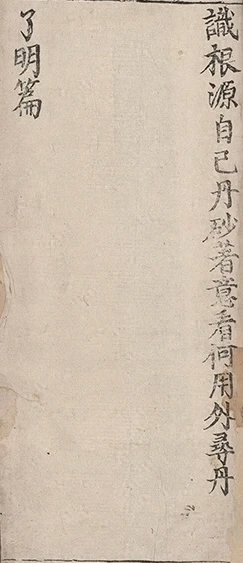 識根源自己丹砂著意看何用外尋丹
了明篇